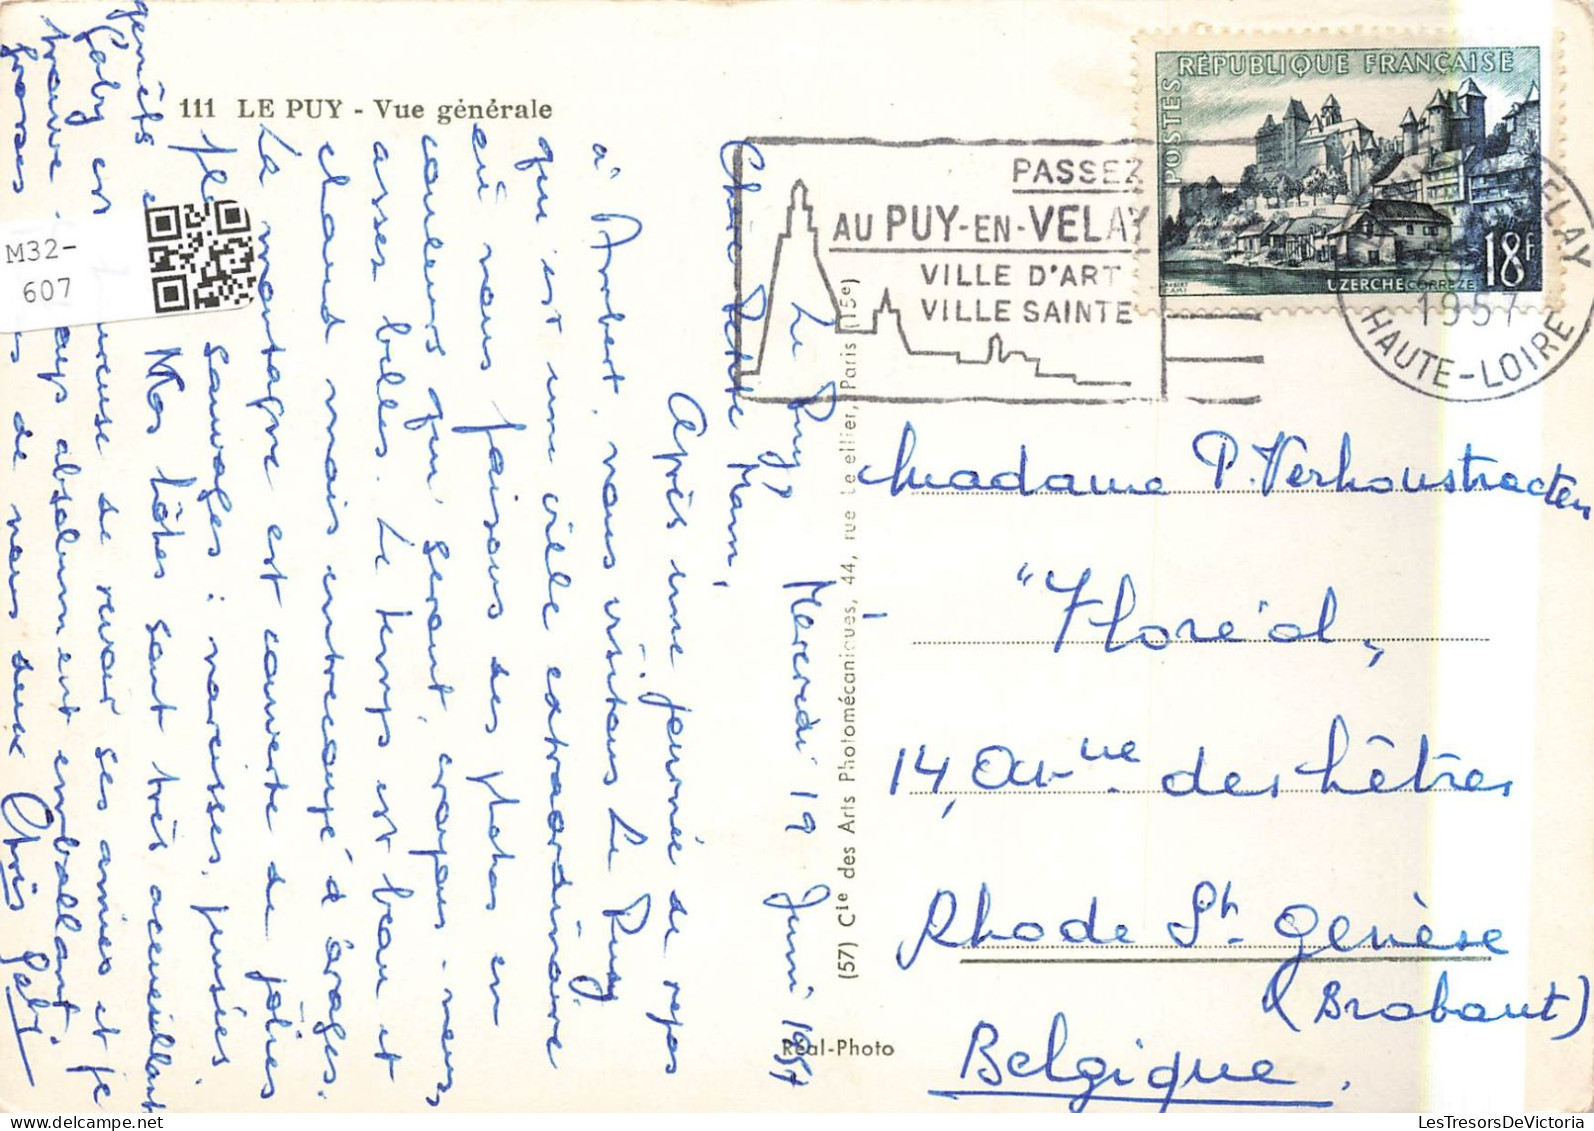 111 LE PUY - Vue générale
Le Puy Mercredi 19 Juin 1957
Chère Petite Mam,
Après une journée de repos
à Ambert, nous visitons Le Puy
qui est une ville extraordinaire
où nous faisons des photos en
couleurs qui seront, croyons-nous
assez belles. Le temps est beau et
chaud mais entrecoupé d'orages.
La montagne est couverte de jolies
sauvages : narcisses, pensées
genêts
Nos hôtes sont très accueillants
Gaby est de revoir ses amies et je
trouve absolument emballant.
Grosses de nous deux
Gaby
(57) Cie des Arts Photomécaniques, 44, rue Letellier, Paris (15e)
Réal-Photo
PASSEZ
AU PUY-EN-VELAY
VILLE D'ART
VILLE SAINTE
RÉPUBLIQUE FRANÇAISE
POSTES
18F
UZERCHE CORRÈZE
1957
HAUTE-LOIRE
Madame P. Verhoustraeten
"Floréal"
14, Avenue des hêtres
Rhode St. Genèse
(Brabant)
Belgique.
M32-
607
LesTresorsDeVictoria.com